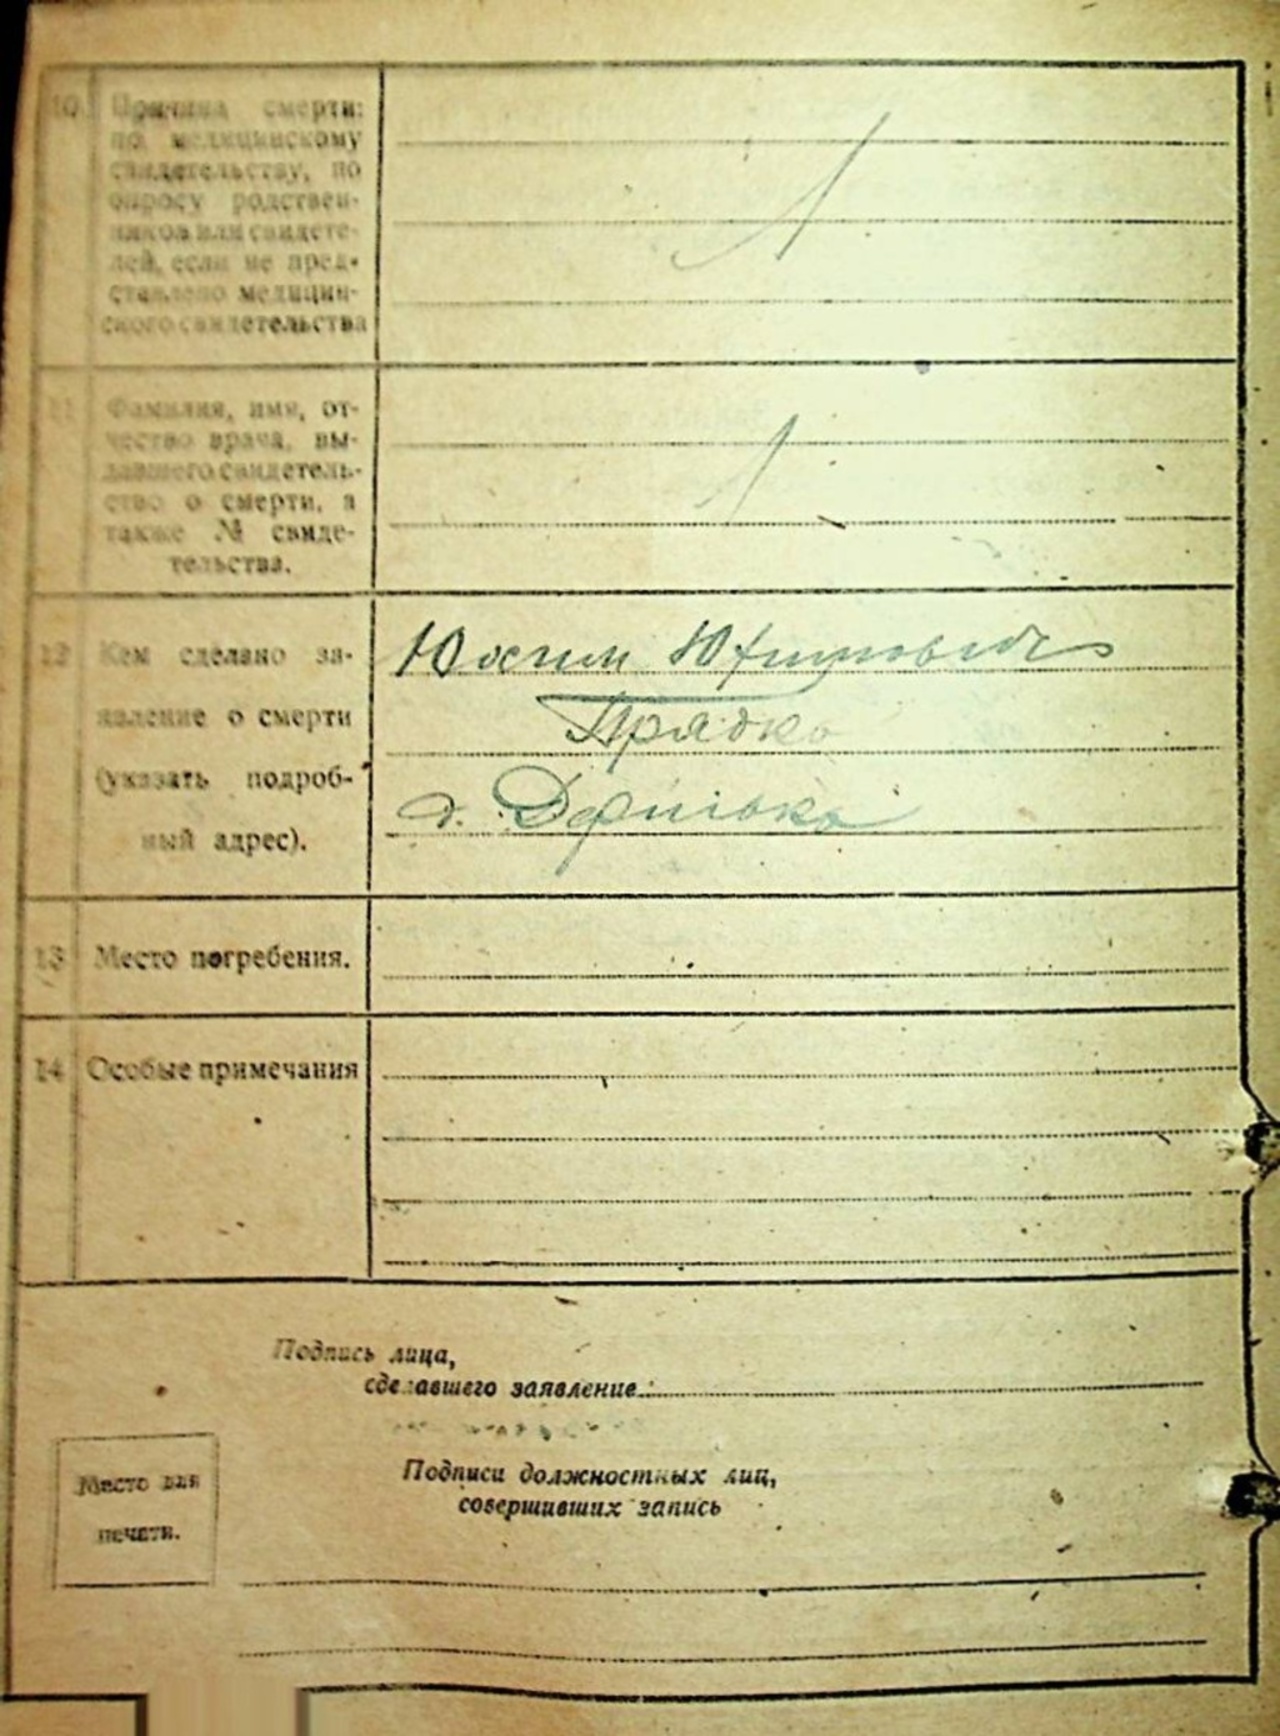 10 Причина смерти:
по медицинскому
свидетельству, по
опросу родствен-
ников или свидете-
лей, если не пред-
ставлено медицин-
ского свидетельства
11 Фамилия, имя, от-
чество врача, вы-
давшего свидетель-
ство о смерти, а
также № свиде-
тельства.
12 Кем сделано за-
явление о смерти
(указать подроб-
ный адрес).
Юхим
Прядко
13 Место погребения.
14 Особые примечания
Подпись лица,
сделавшего заявление
Подписи должностных лиц,
совершивших запись
Место для
печати.